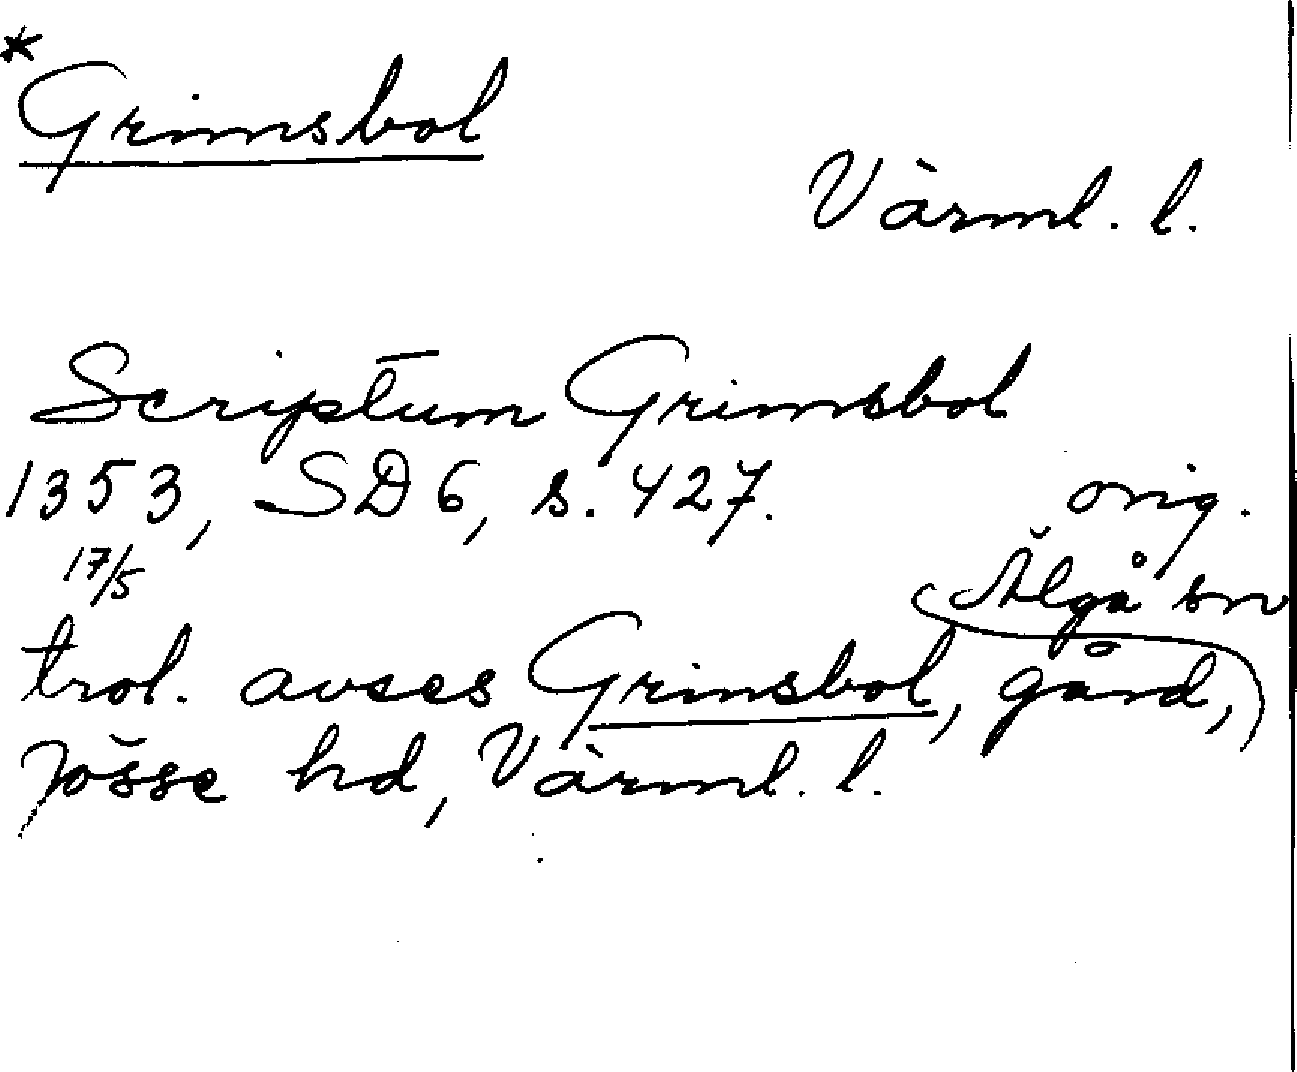 *Grimsbol
Värml. l.
Scriptum Grimsbol
1353, SD 6, s. 427. orig.
17/5
Älgå sn
trol. avses Grimsbol, gård,
Jösse hd, Värml. l.